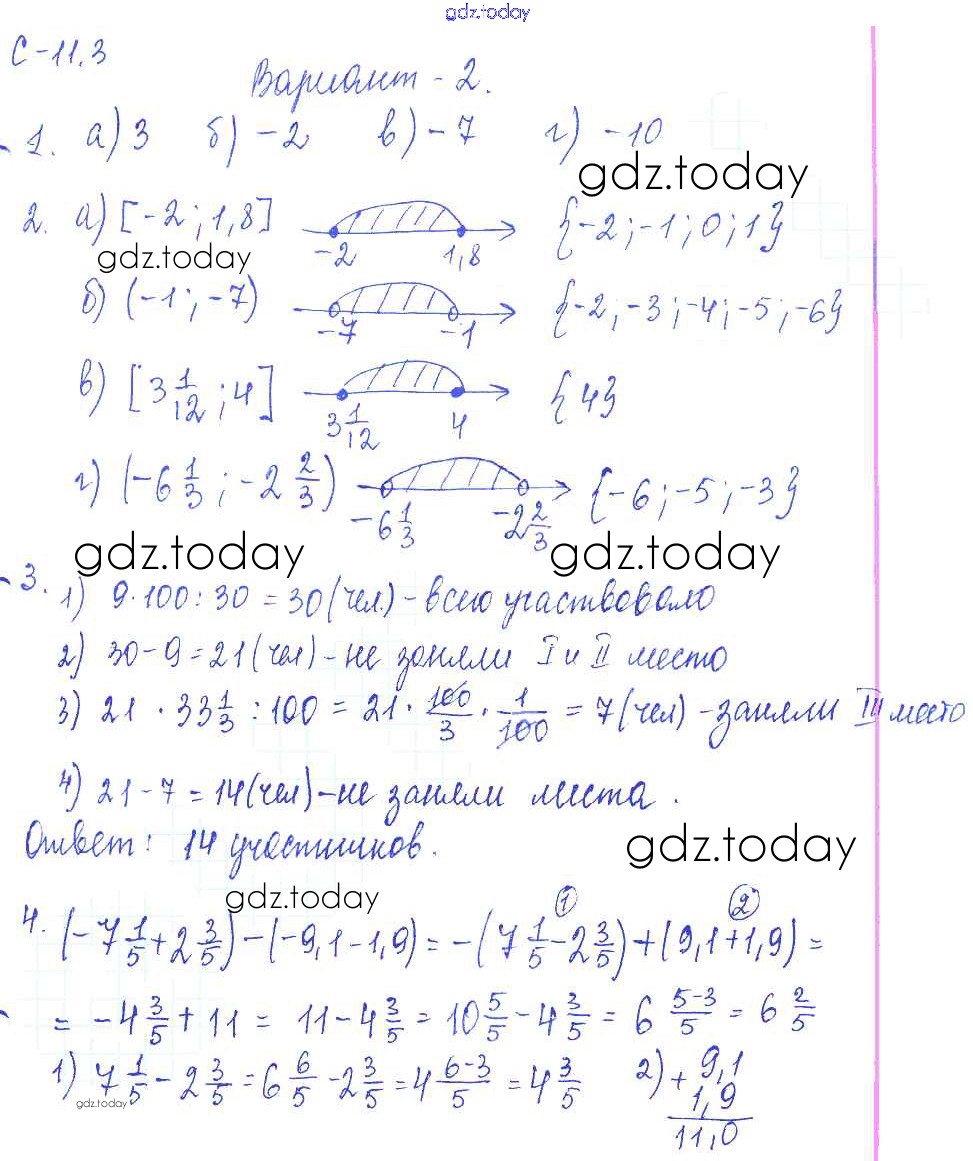 gdz.today
С-11.3
Вариант-2.
1. а) 3 б) -2 в) -7 г) -10
gdz.today
2. а) [-2; 1,8] -2 1,8 {-2; -1; 0; 1}
gdz.today
б) (-1; -7) -7 -1 {-2; -3; -4; -5; -6}
в) [3 1/12; 4] 3 1/12 4 {4}
г) (-6 1/3; -2 2/3) -6 1/3 -2 2/3 {-6; -5; -3}
gdz.today gdz.today
3. 1) 9·100:30=30(чел.)-всего участвовало
2) 30-9=21(чел)-не заняли I и II место
3) 21·33 1/3:100=21·100/3·1/100=7(чел)-заняли III место
4) 21-7=14(чел)-не заняли места.
Ответ: 14 участников.
gdz.today
gdz.today
① ②
4. (-7 1/5+2 3/5)-(-9,1-1,9)=-(7 1/5-2 3/5)+(9,1+1,9)=
=-4 3/5+11=11-4 3/5=10 5/5-4 3/5=6 5-3/5=6 2/5
1) 7 1/5-2 3/5=6 6/5-2 3/5=4 6-3/5=4 3/5 2) +9,1
gdz.today
1,9
11,0